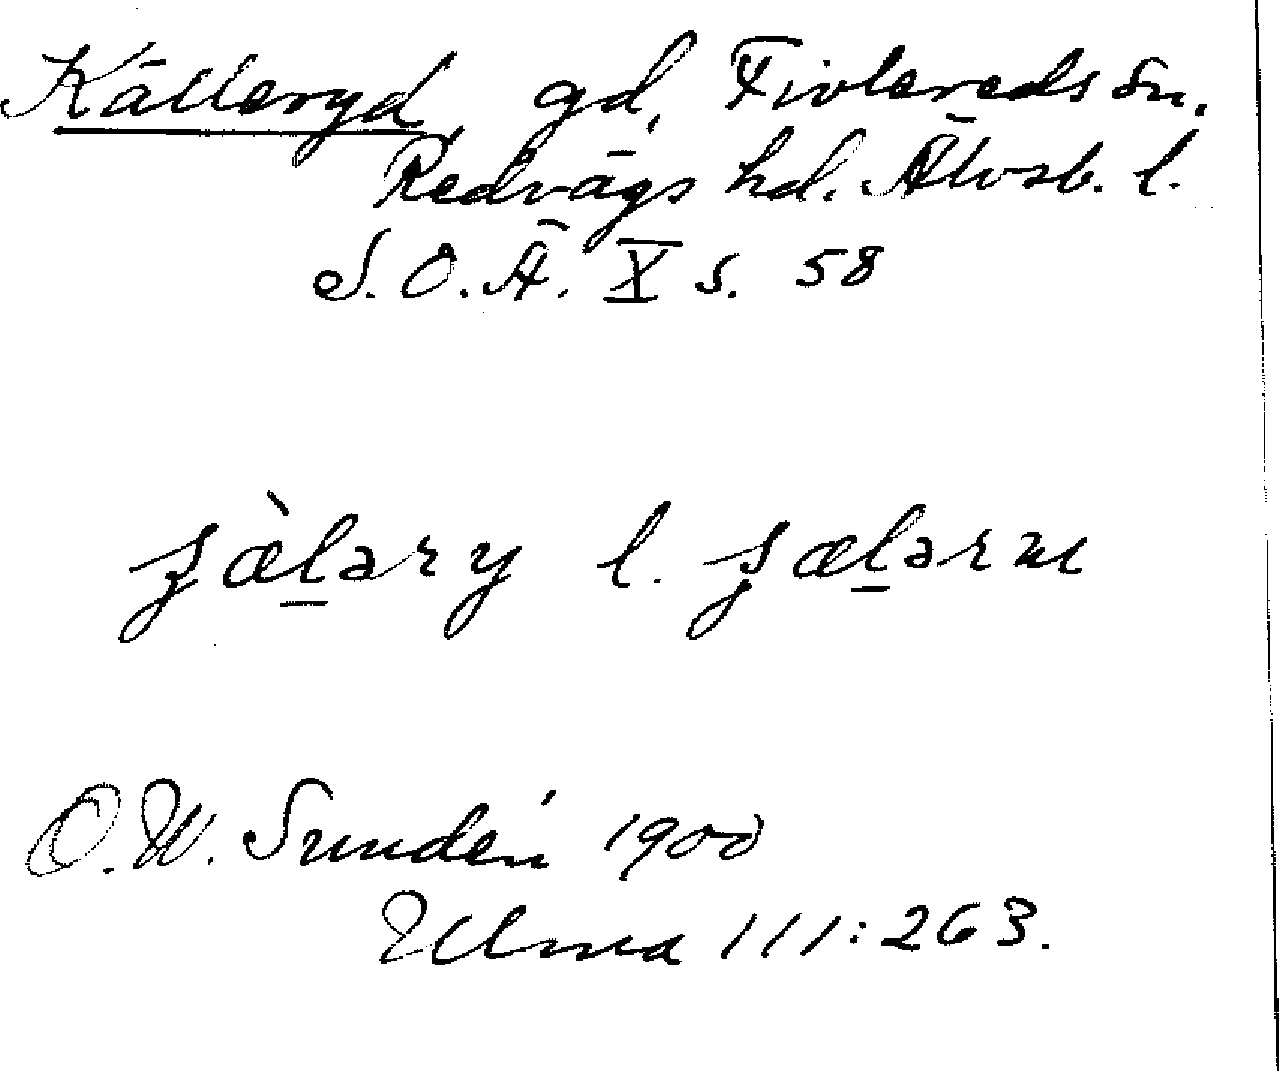 Källeryd, gd, Fivlereds sn.
Redvägs hd. Älvsb. l.
S. O. Ä. X s. 58
l.
O. W. Sundén 1900
Ulma 111:263.